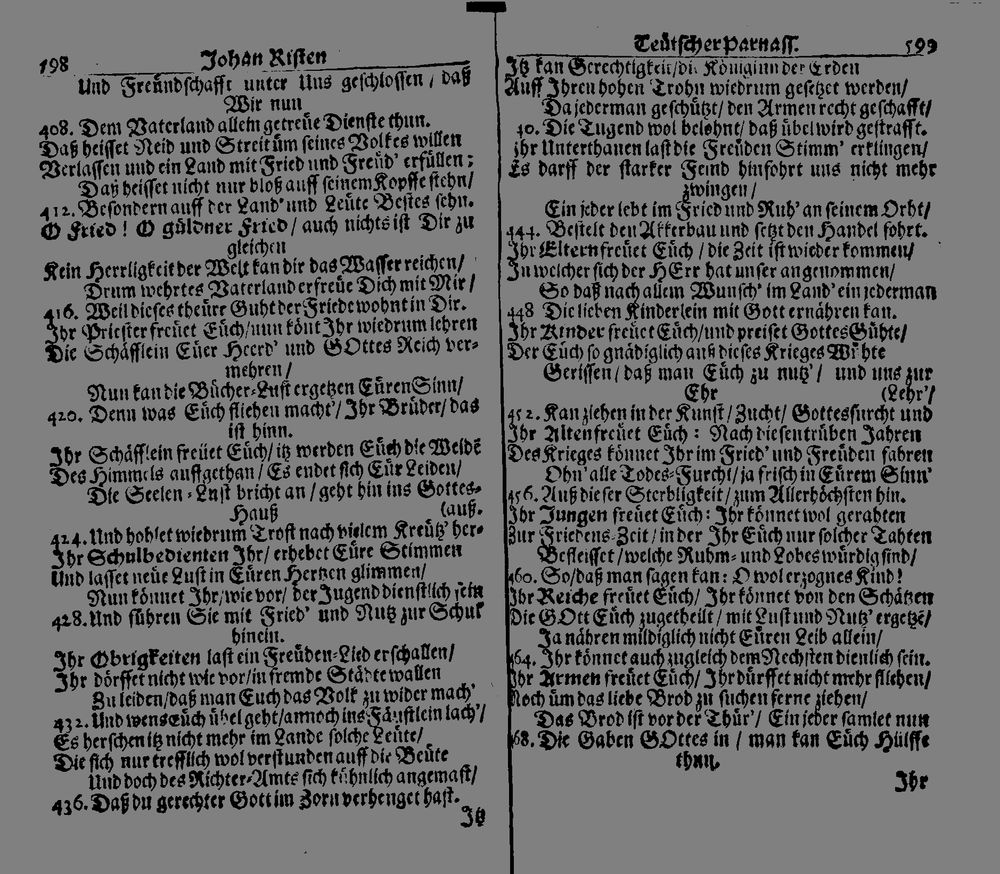 198 Johan Risten
Und Freündschafft unter Uns geschlossen / daß
Wir nun
408. Dem Vaterland allein getreüe Dienste thun.
Daß heisset Neid und Streit üm seines Volkes willen
Verlassen und ein Land mit Fried und Freüd' erfüllen;
Daß heisset nicht nur bloß auff seinem Kopffe stehn/
412. Besondern auff der Land' und Leüte Bestes sehn.
O Fried! O güldner Fried / auch nichts ist Dir zu
gleichen
Kein Herrligkeit der Welt kan dir das Wasser reichen/
Drum wehrtes Vaterland erfreüe Dich mit Mir /
416. Weil dieses theüre Guht der Friede wohnt in Dir.
Ihr Priester freüet Eüch/nun könt Ihr wiedrum lehren
Die Schäfflein Eüer Heerd' und GOttes Reich ver-
mehren/
Nun kan die Bücher-Lust ergetzen Eüren Sinn/
420. Denn was Eüch fliehen macht'/ Ihr Brüder/das
ist hinn.
Ihr Schäfflein freüet Eüch/ itz werden Eüch die Weidē
Des Himmels auffgethan/ Es endet sich Eür Leiden/
Die Seelen-Lust bricht an / geht hin ins Gottes-
Hauß (auß.
424. Und hohlet wiedrum Trost nach vielem Kreütz' her-
Ihr Schulbedienten Ihr/ erhebet Eüre Stimmen
Und lasset neüe Lust in Eüren Hertzen glimmen/
Nun könnet Ihr/wie vor/ der Jugend dienstlich sein
428. Und führen Sie mit Fried' und Nutz zur Schul
hinein.
Ihr Obrigkeiten last ein Freüden-Lied erschallen/
Ihr dörffet nicht wie vor/in fremde Städte wallen
Zu leiden/daß man Euch das Volk zu wider mach'
432. Und wens Eüch übel geht/annoch ins Fäustlein lach'/
Es herschen itz nicht mehr im Lande solche Leüte/
Die sich nur trefflich wol verstunden auff die Beüte
Und doch des Richter-Amts sich kühnlich angemast/
436. Daß du gerechter Gott im Zorn verhenget hast.
Itz
Teütscher Parnass. 599
Itz kan Gerechtigkeit/die Königinn der Erden
Auff Ihren hohen Trohn wiedrum gesetzet werden/
Da jederman geschützt/ den Armen recht geschafft/
40. Die Tugend wol belohnt/ daß übel wird gestrafft.
Ihr Unterthanen last die Freüden Stimm' erklingen/
Es darff der starker Feind hinfohrt uns nicht mehr
zwingen/
Ein jeder lebt im Fried und Ruh' an seinem Orht/
444. Bestelt den Akkerbau und setzt den Handel fohrt.
Ihr Eltern freüet Eüch / die Zeit ist wieder kommen/
In welcher sich der HErr hat unser angenommen/
So daß nach allem Wunsch' im Land' ein jederman
448 Die lieben Kinderlein mit Gott ernähren kan.
Ihr Kinder freüet Eüch/und preiset Gottes Gühte/
Der Eüch so gnädiglich auß dieses Krieges Wühte
Gerissen/ daß man Eüch zu nutz'/ und uns zur
Ehr (Lehr'/
452. Kan ziehen in der Kunst/ Zucht/ Gottesfurcht und
Ihr Alten freüet Eüch: Nach diesen trüben Jahren
Des Krieges könnet Ihr im Fried' und Freüden fahren
Ohn' alle Todes-Furcht/ ja frisch in Eürem Sinn'
456. Auß dieser Sterbligkeit / zum Allerhöchsten hin.
Ihr Jungen freüet Eüch: Ihr könnet wol gerahten
Zur Friedens-Zeit/ in der Ihr Eüch nur solcher Tahten
Befleisset/welche Ruhm- und Lobes würdig sind/
460. So/daß man sagen kan: O wol erzognes Kind!
Ihr Reiche freüet Eüch/ Ihr könnet von den Schätzen
Die GOtt Eüch zugetheilt / mit Lust und Nutz' ergetzē/
Ja nähren mildiglich nicht Eüren Leib allein/
464. Ihr könnet auch zugleich dem Nechsten dienlich sein.
Ihr Armen freüet Eüch/ Ihr dürffet nicht mehr fliehen/
Noch üm das liebe Brod zu suchen ferne ziehen/
Das Brod ist vor der Thür'/ Ein jeder samlet nun
68. Die Gaben GOttes in / man kan Eüch Hülffe
thun.
Ihr